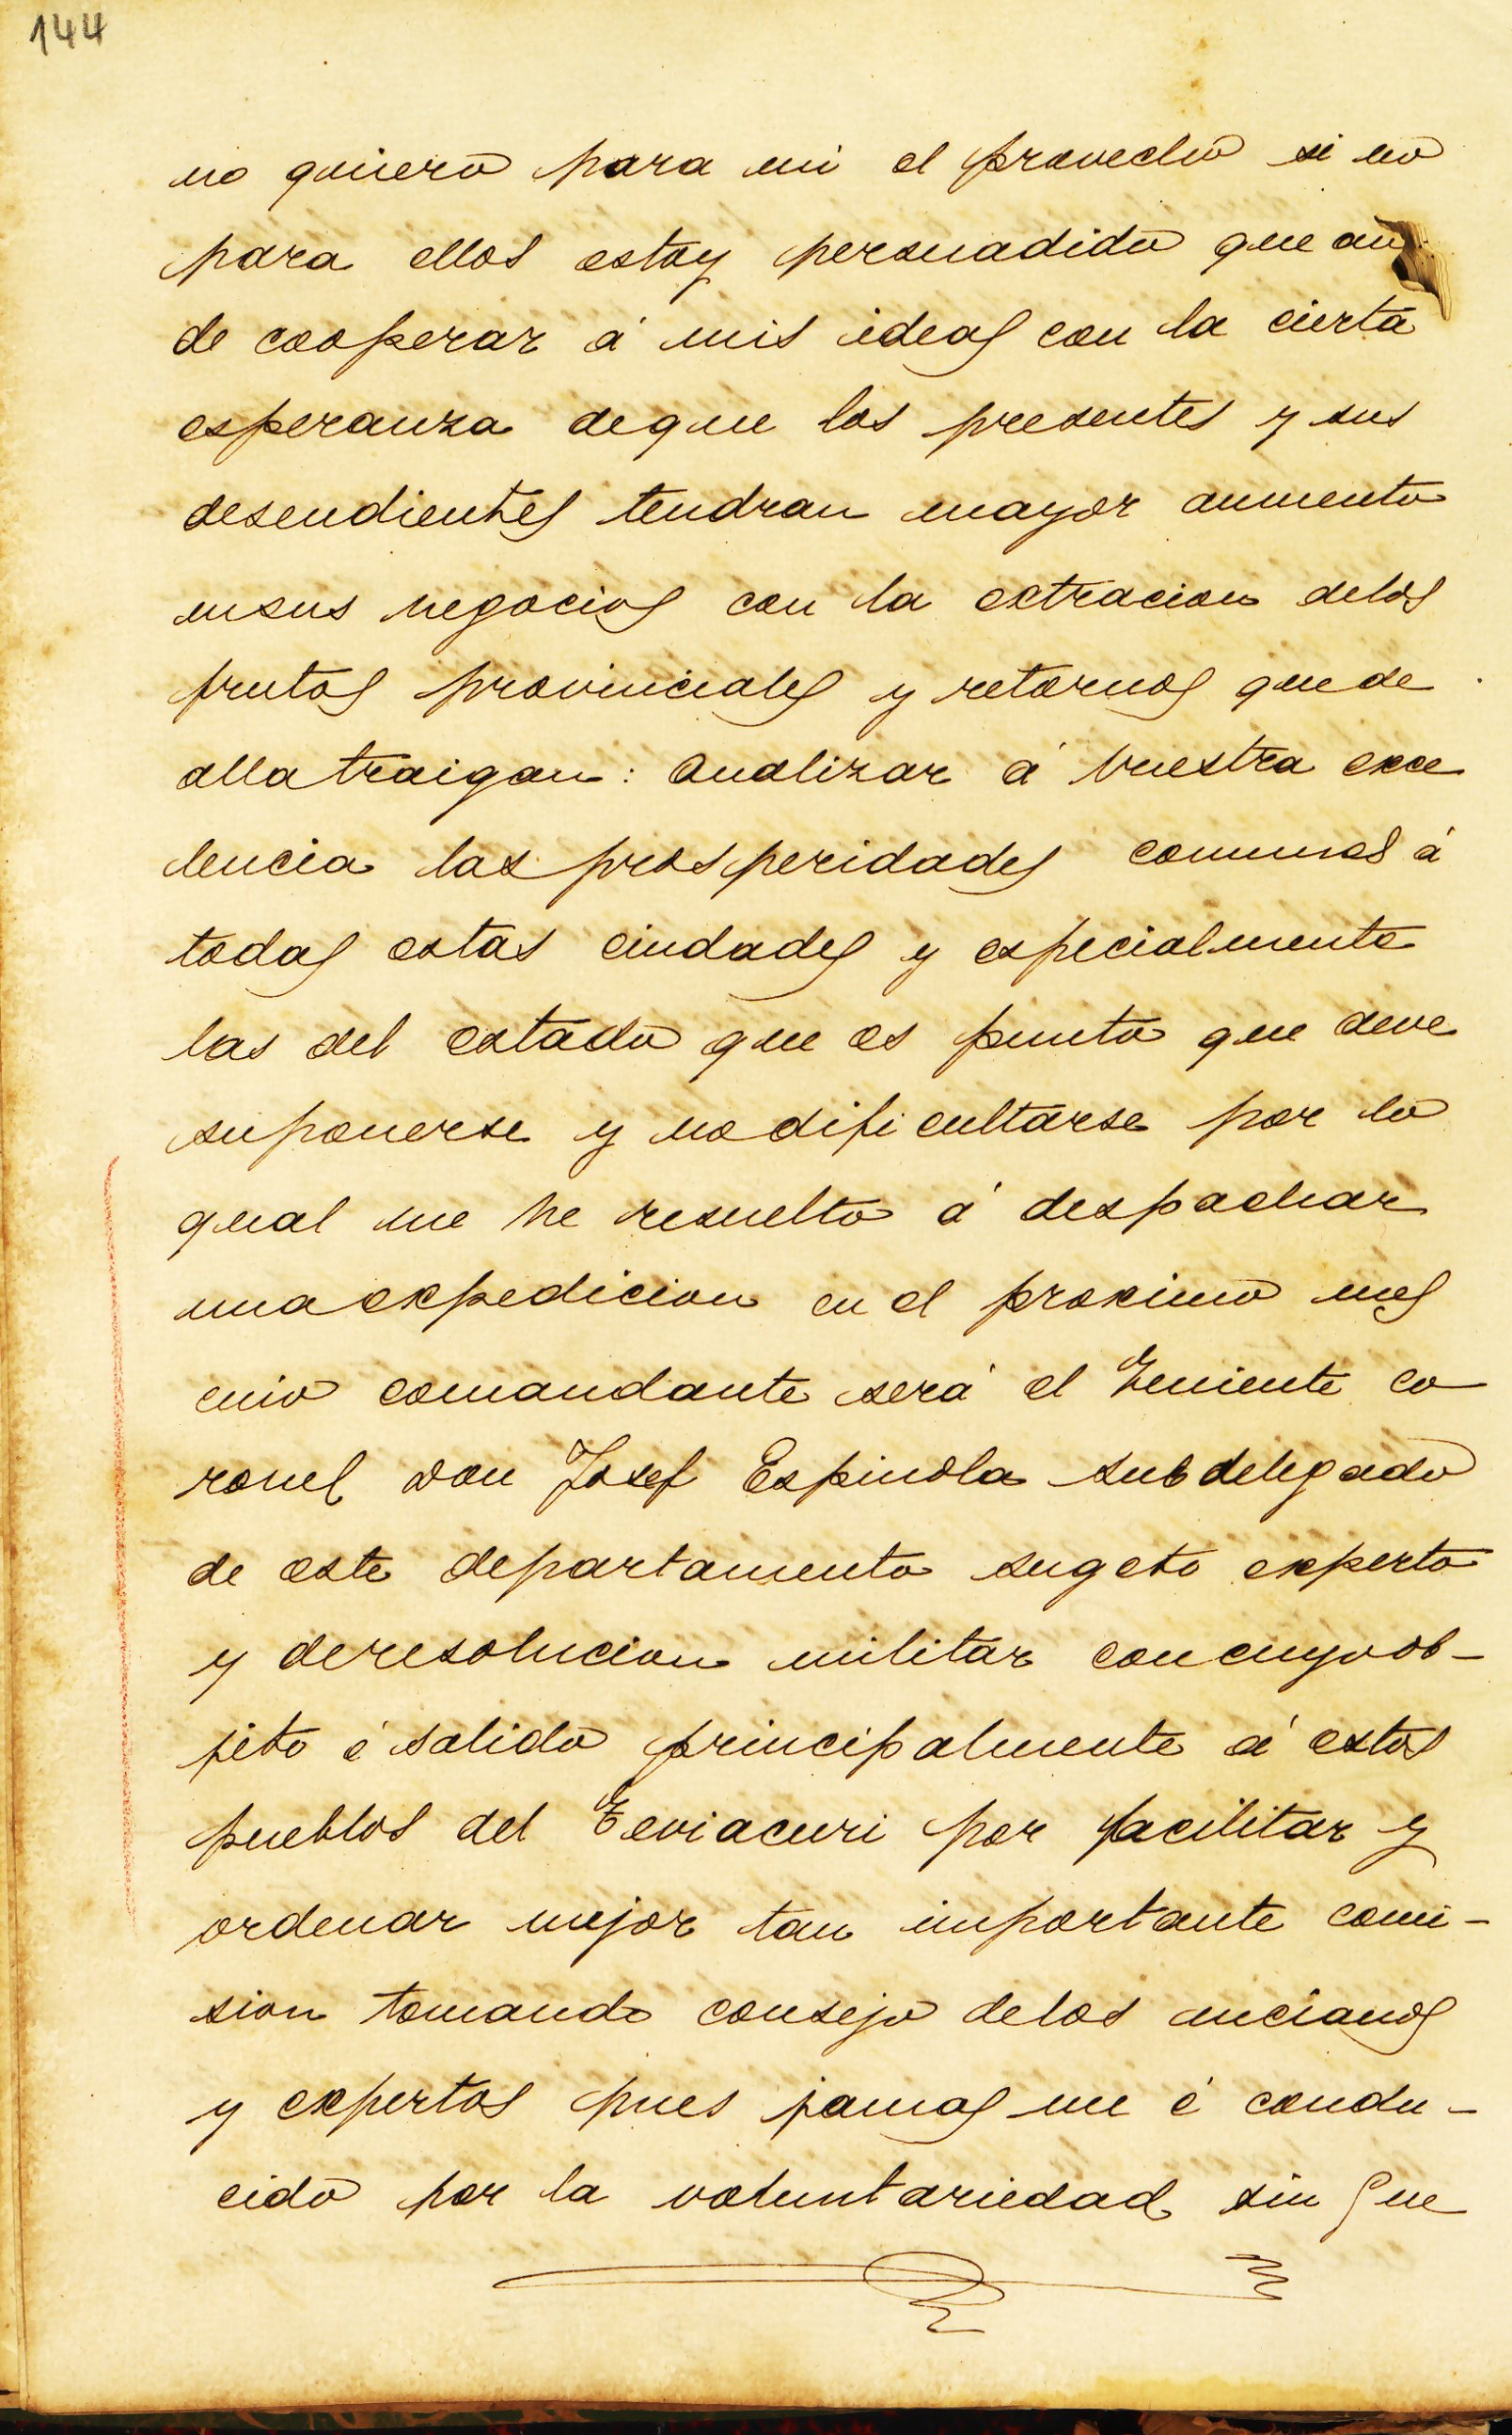 144
no quiero para mi el provecho si no
para ellos estoy persuadido que an
de cooperar á mis ideas con la cierta
esperanza deque los presentes y sus
desendientes tendran mayor aumento
ensus negocios con la extracion delos
frutos provinciales y retornos que de
alla traigan: Analizar á Vuestra exce
lencia las prosperidades comunes á
todas estas ciudades y especialmente
las del estado que es punto que deve
suponerse y no dificultarse por lo
qual me he resuelto á despachar
una expedicion en el proximo mes
cuio comandante será el Teniente co
ronel Don Josef Espinola subdelegado
de este departamento sugeto experto
y deresolucion militar con cuyo ob-
jeto é salido principalmente á estos
pueblos del Teviacuri por facilitar y
ordenar mejor tan importante comi-
sion tomando consejo delos ancianos
y expertos pues jamas me é condu-
cido por la voluntariedad sin que